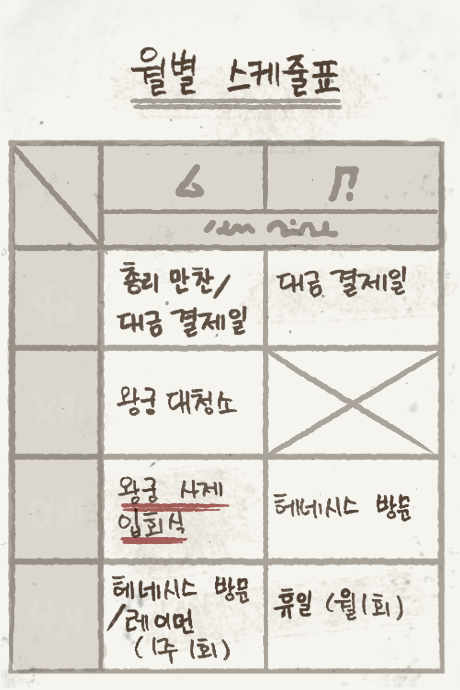 월별 스케줄표
총리 만찬/
대금 결제일
대금 결제일
왕궁 대청소
왕궁 사제
입회식
테네시스 방문
테네시스 방문
/레이먼
(1주 1회)
휴일 (월1회)